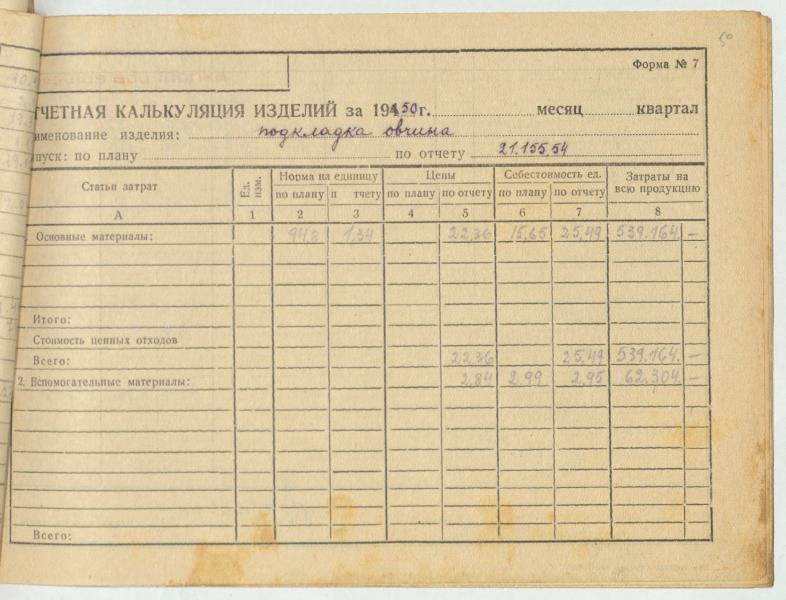 50
Форма № 7
ТЧЕТНАЯ КАЛЬКУЛЯЦИЯ ИЗДЕЛИЙ за 1950 г. месяц квартал
именование изделия: подкладка овчина
пуск: по плану по отчету 21.155,54
Статьи затрат Ед. изм. Норма на единицу Цены Себестоимость ед. Затраты на всю продукцию
по плану п тчету по плану по отчету по плану по отчету
А 1 2 3 4 5 6 7 8
Основные материалы: 948 1,34 22,36 15,65 25,49 539.164 —
Итого:
Стоимость ценных отходов
Всего: 22,36 25,49 539.164. —
2. Вспомогательные материалы: 2,84 2,99 2,95 62.304 —
Всего: